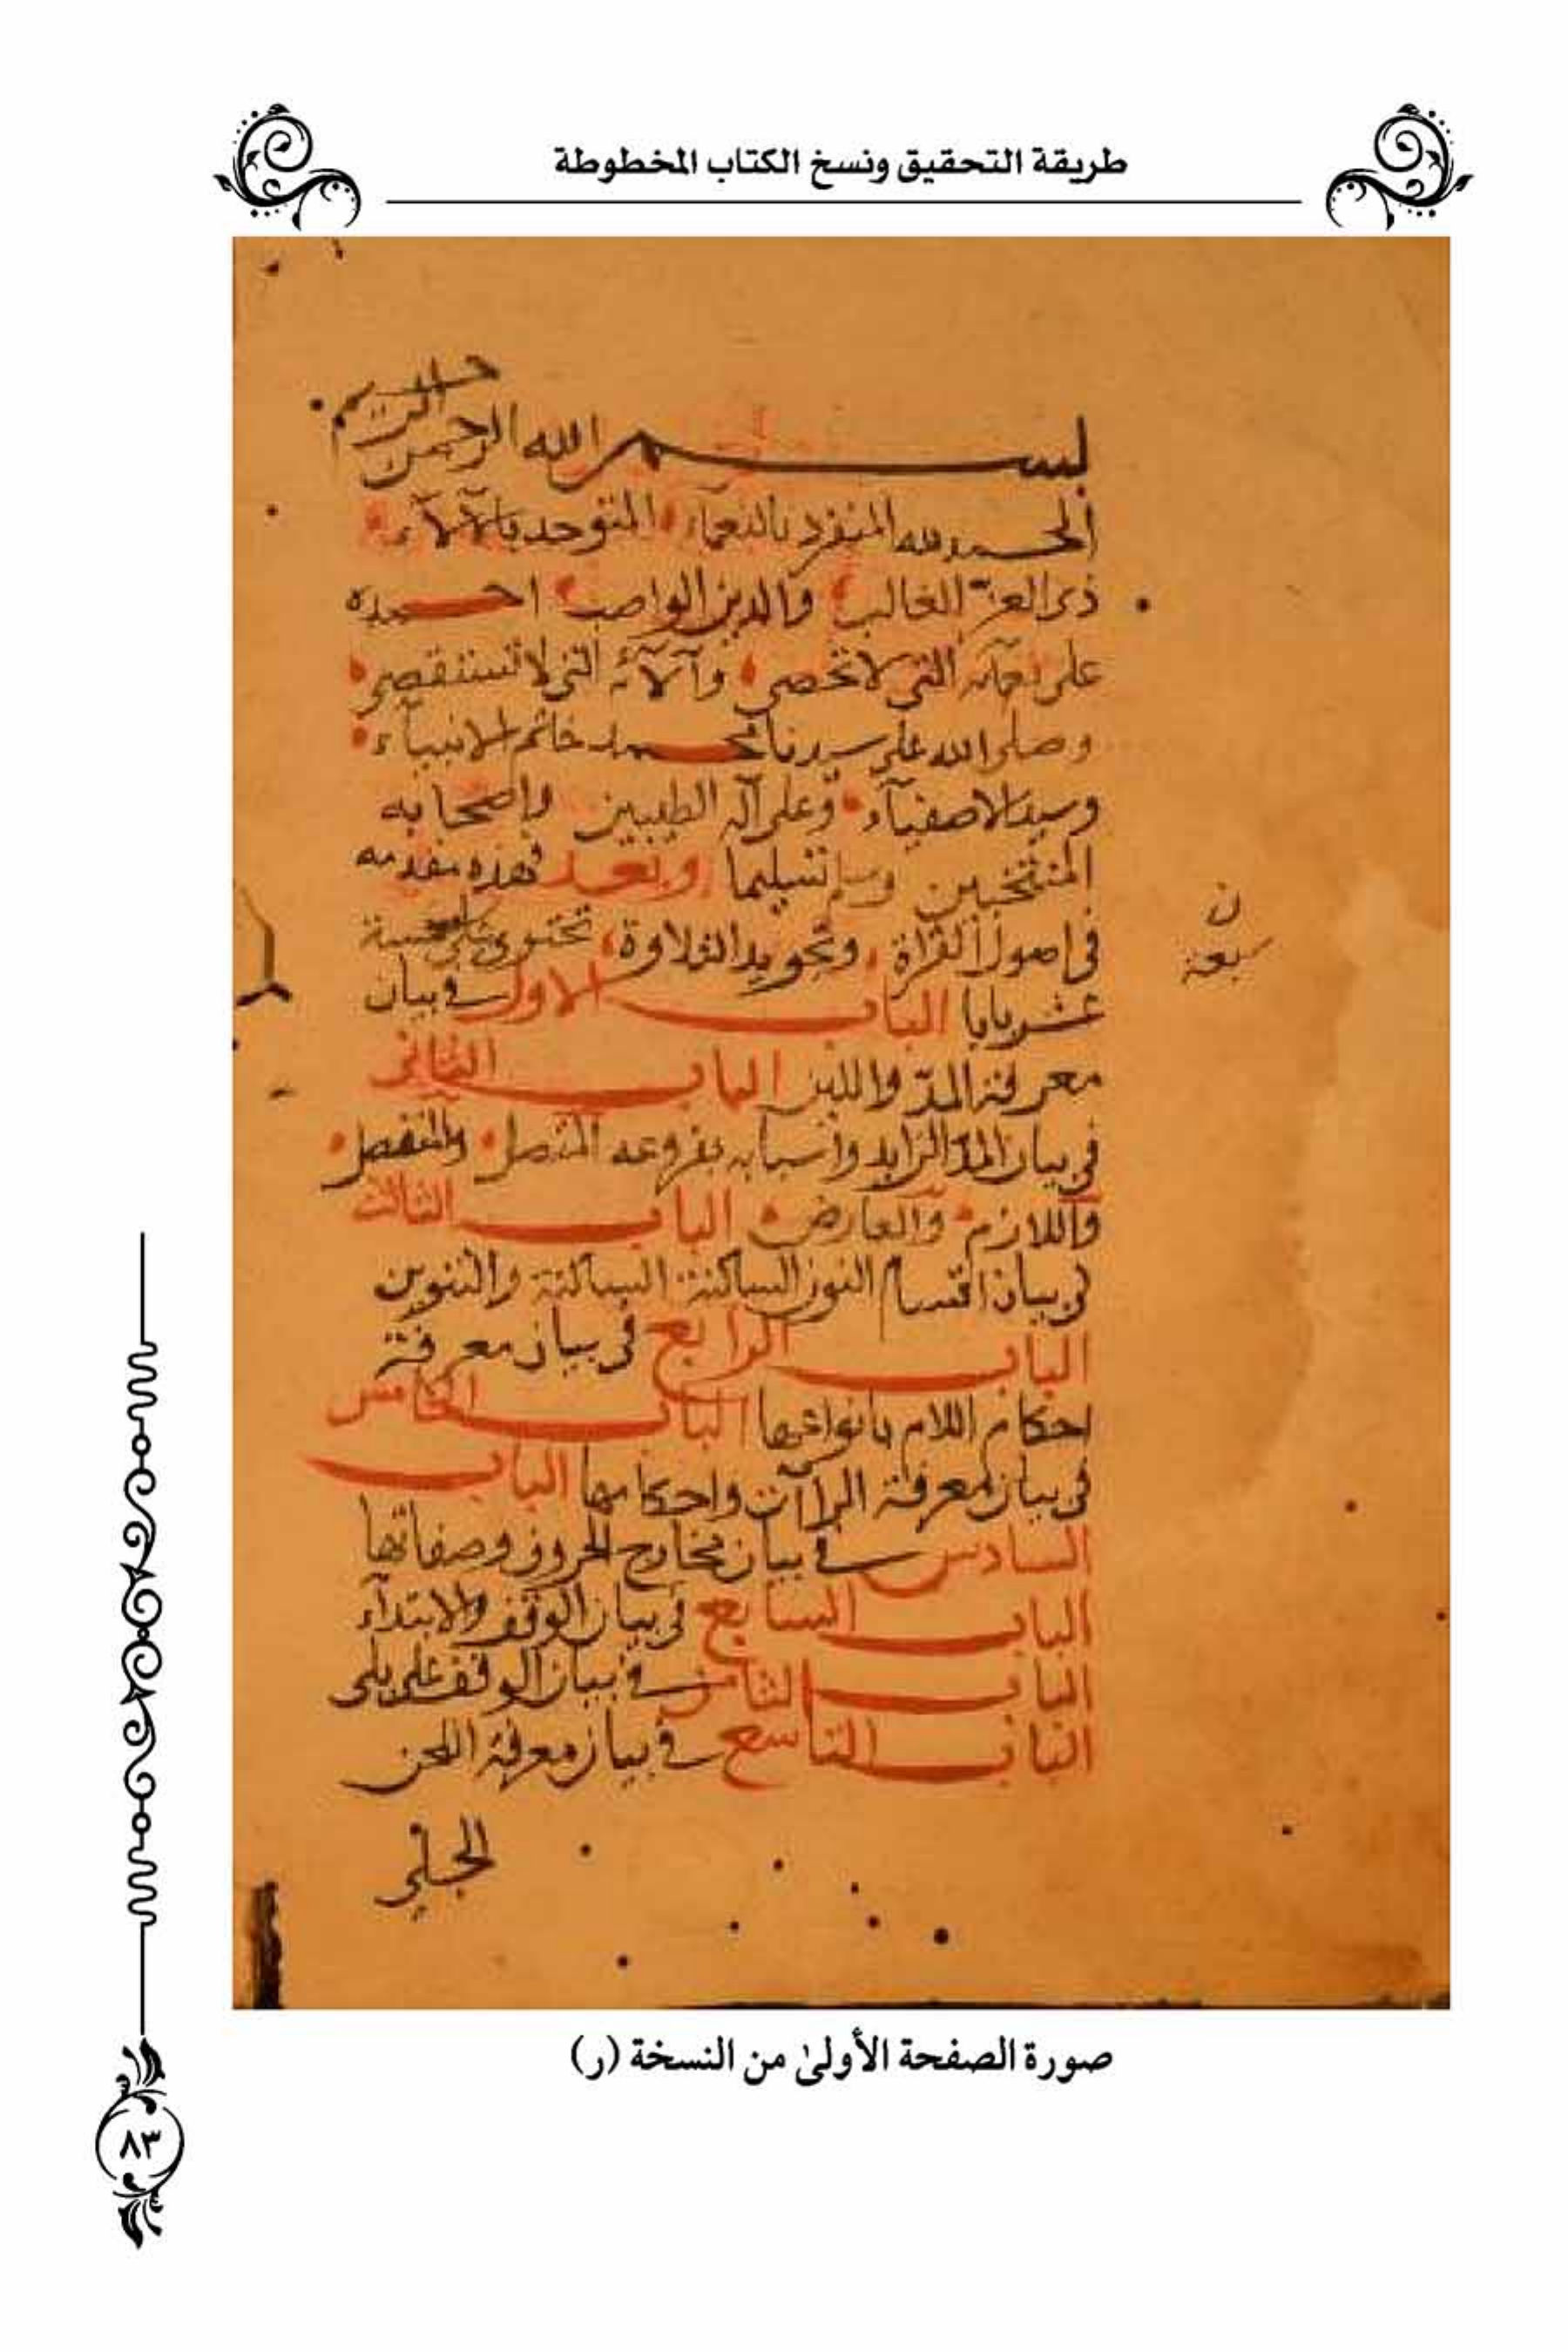 طريقة التحقيق ونسخ الكتاب المخطوطة
بسم الله الرحمن الرحيم
الحمد لله المنفرد بالنعماء المتوحد بالآلآء
ذي العزّ الغالب والدين الواصب احمده
على نعمآئه التي لا تحصى وآلآئه التي لا تستقصى
وصلى الله على سيدنا محمد خاتم الانبيآء
وسيد الاصفيآء وعلى آله الطيبين واصحابه
المنتخبين وسلم تسليما وبعد فهذه مقدمه
في اصول القرآة وتجويد التلاوة تحتوي على خمسة
ن
سبعة
عشر بابا الباب الاول في بيان
معرفة المدّ واللين الباب الثاني
في بيان المدّ الزايد واسبابه بفروعه المتصل والمنفصل
واللازم والعارض الباب الثالث
في بيان اقسام النون الساكنة الساكنة والتنوين
الباب الرابع في بيان معرفة
احكام اللام بانواعها الباب الخامس
في بيان معرفة الرآآت واحكامها الباب
السادس في بيان مخارج الحروف وصفاتها
الباب السابع في بيان الوقف والابتدآء
الباب الثامن في بيان الوقف على بلى
الباب التاسع في بيان معرفة اللحن
الجلي
صورة الصفحة الأولىٰ من النسخة (ر)
٨٣